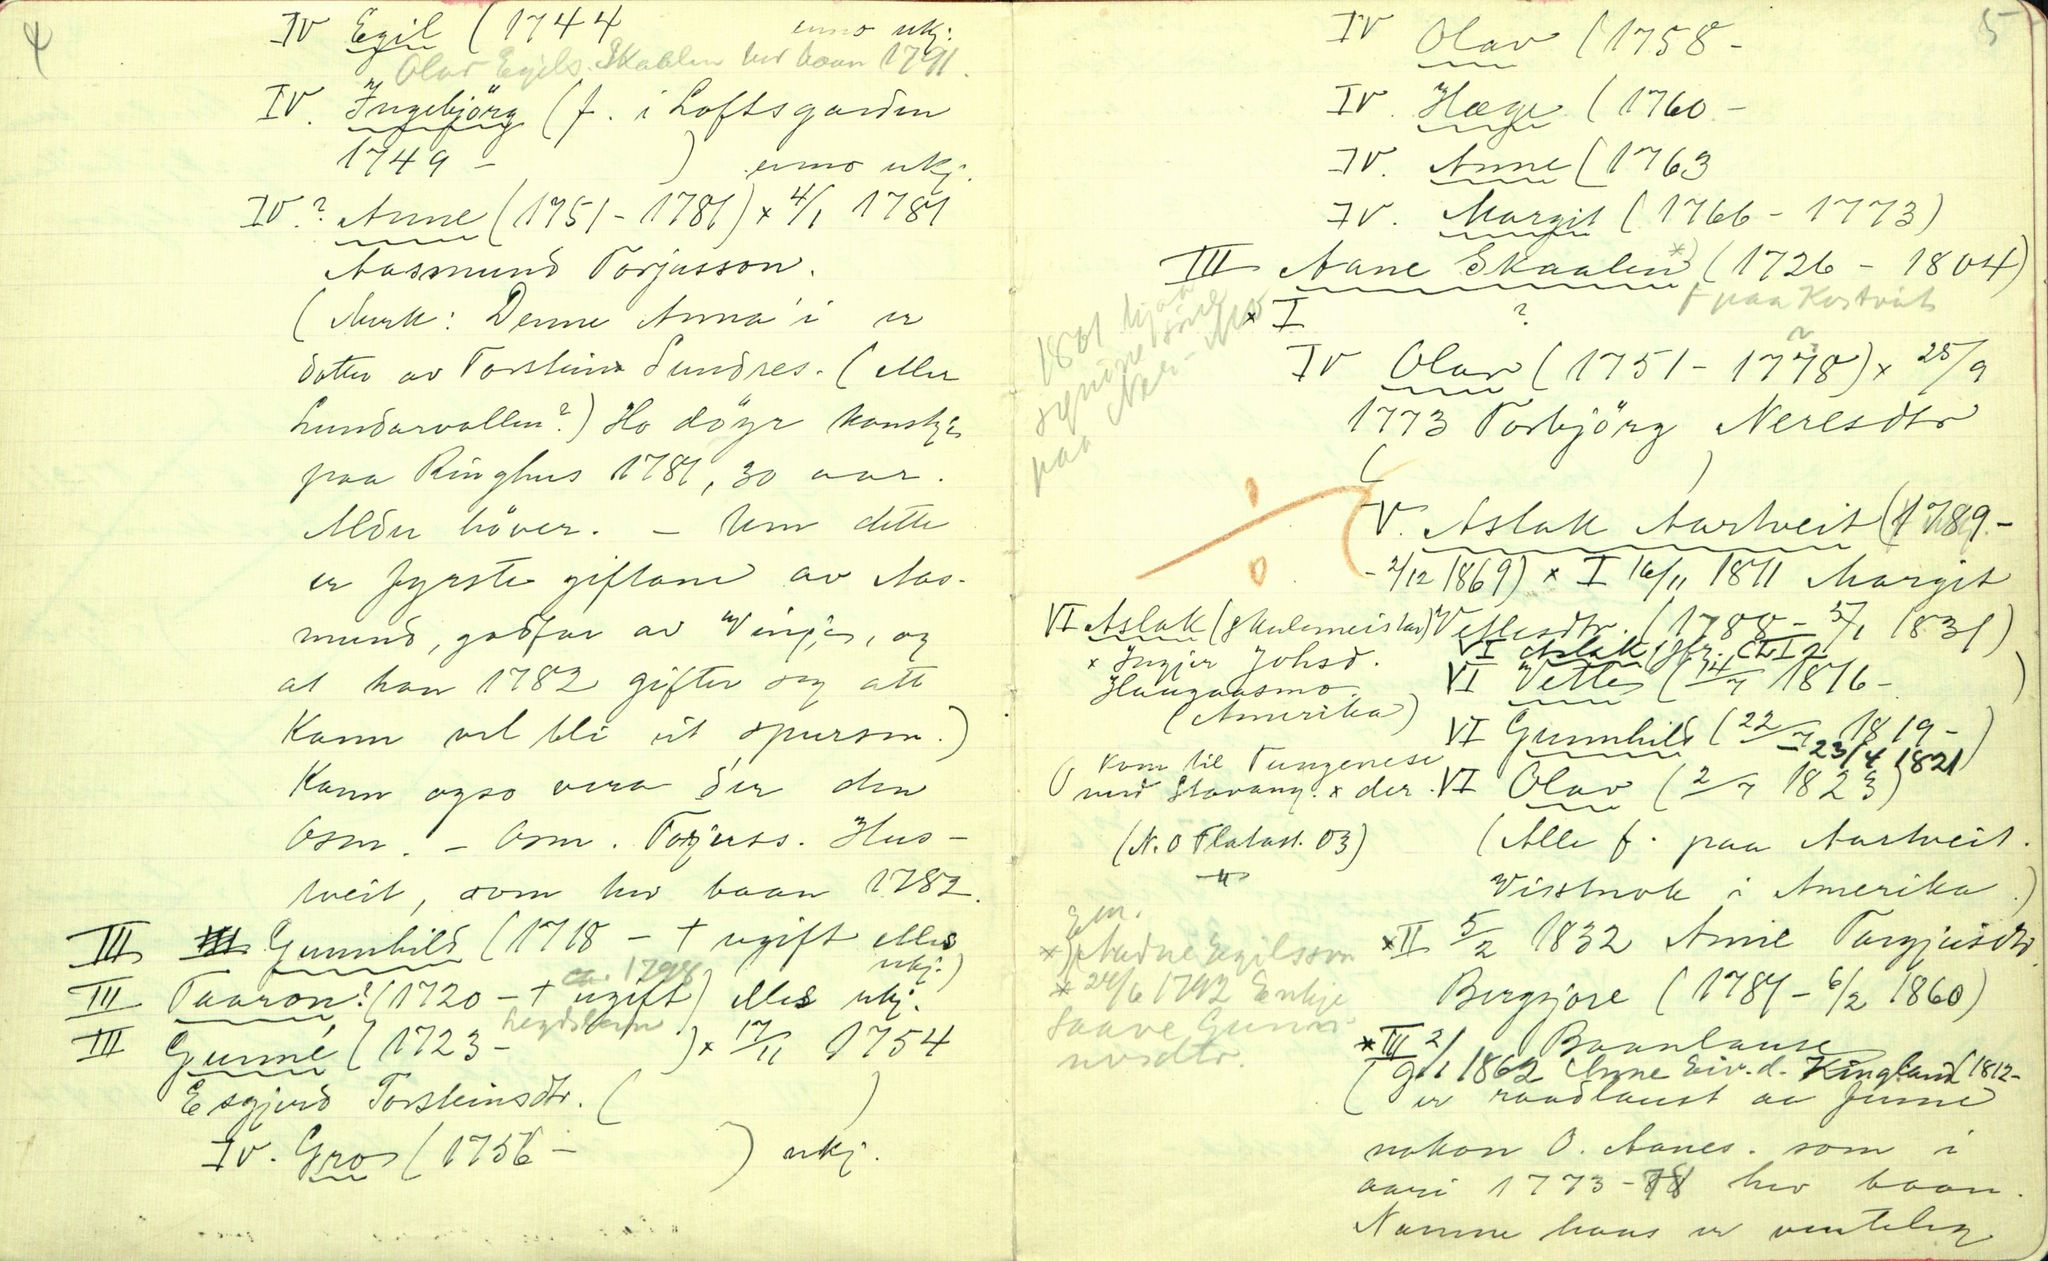 4
IV Egil (1744 umo ukj.
Olav Egils. Skaalen hev baan 1791.
IV. Ingebjörg (f. i Loftsgarden
1749 - ) umo ukj.
IV? Anne (1751 - 1781) x 4/1 1781
Aasmund Torjusson.
(Merk: Denne Anna'i er
dotter av Torstein Sundres. (eller
Lundarvollen?) Ho döyr kanskje
paa Ringhus 1781, 30 aar.
Alder höver. - Um dette
er fyrste giftane av Aas-
mund, godfar av Vinje, og
at han 1782 gifter seg att
kann vel bli eit spursm.)
Kann ogso vera der den
Osm. - Osm. Torjuss. Hus-
tveit, som hev baan 1782.
III Gunnhild (1718 - † ugift elles
ukj.)
ca. 1798
III Taaron? (1720 - † ugift) elles ukj.
III Gunne (1723 - ) x 17/11 1754
Esgjerd Torsteinsdtr. ( )
IV. Gro (1756 - ) ukj.
5
IV Olav (1758 -
IV. Hæge (1760 -
IV. Anne (1763
IV. Margit (1766 - 1773)
III Aane Skaalen *) (1726 - 1804)
† paa Kostveit
x I ?
1801 hjaa
paa
IV Olav (1751 - 1778) x 25/9
1773 Torbjörg Neresdtr
( )
V. Aslak Aartveit (1789 -
- 2/12 1869) x I 16/11 1811 Margit
Vetlesdtr. (1788 - 5/1 1831)
VI Aslak (skulemeistar)
x Ingjer Johsd.
Haugaasmo.
(Amerika)
VI Aslak
VI Vetle (14/7 1816 - )
VI Gunnhild (22/7 1819 -
23/4 1821)
kom til Tungenese
ved Stavang. x der.
VI Olav (2/7 1823)
(N. O Flatast. 03)
(Alle f. paa Aartveit.
Visstnok i Amerika.)
x II 5/2 1832 Anne Targjusdtr
Bergsjore (1787 - 6/2 1860)
Aadne Egilsson
* 24/6 1792 Enkje
Saave Gunn-
x III 2/1 Baanlause
1862 Anne Eiv.d. Kingland (1812-
( er raadlaust aa finne
nokon O. Aanes. som i
aari 1773 - 78 hev baan.
Namne hans er venteleg